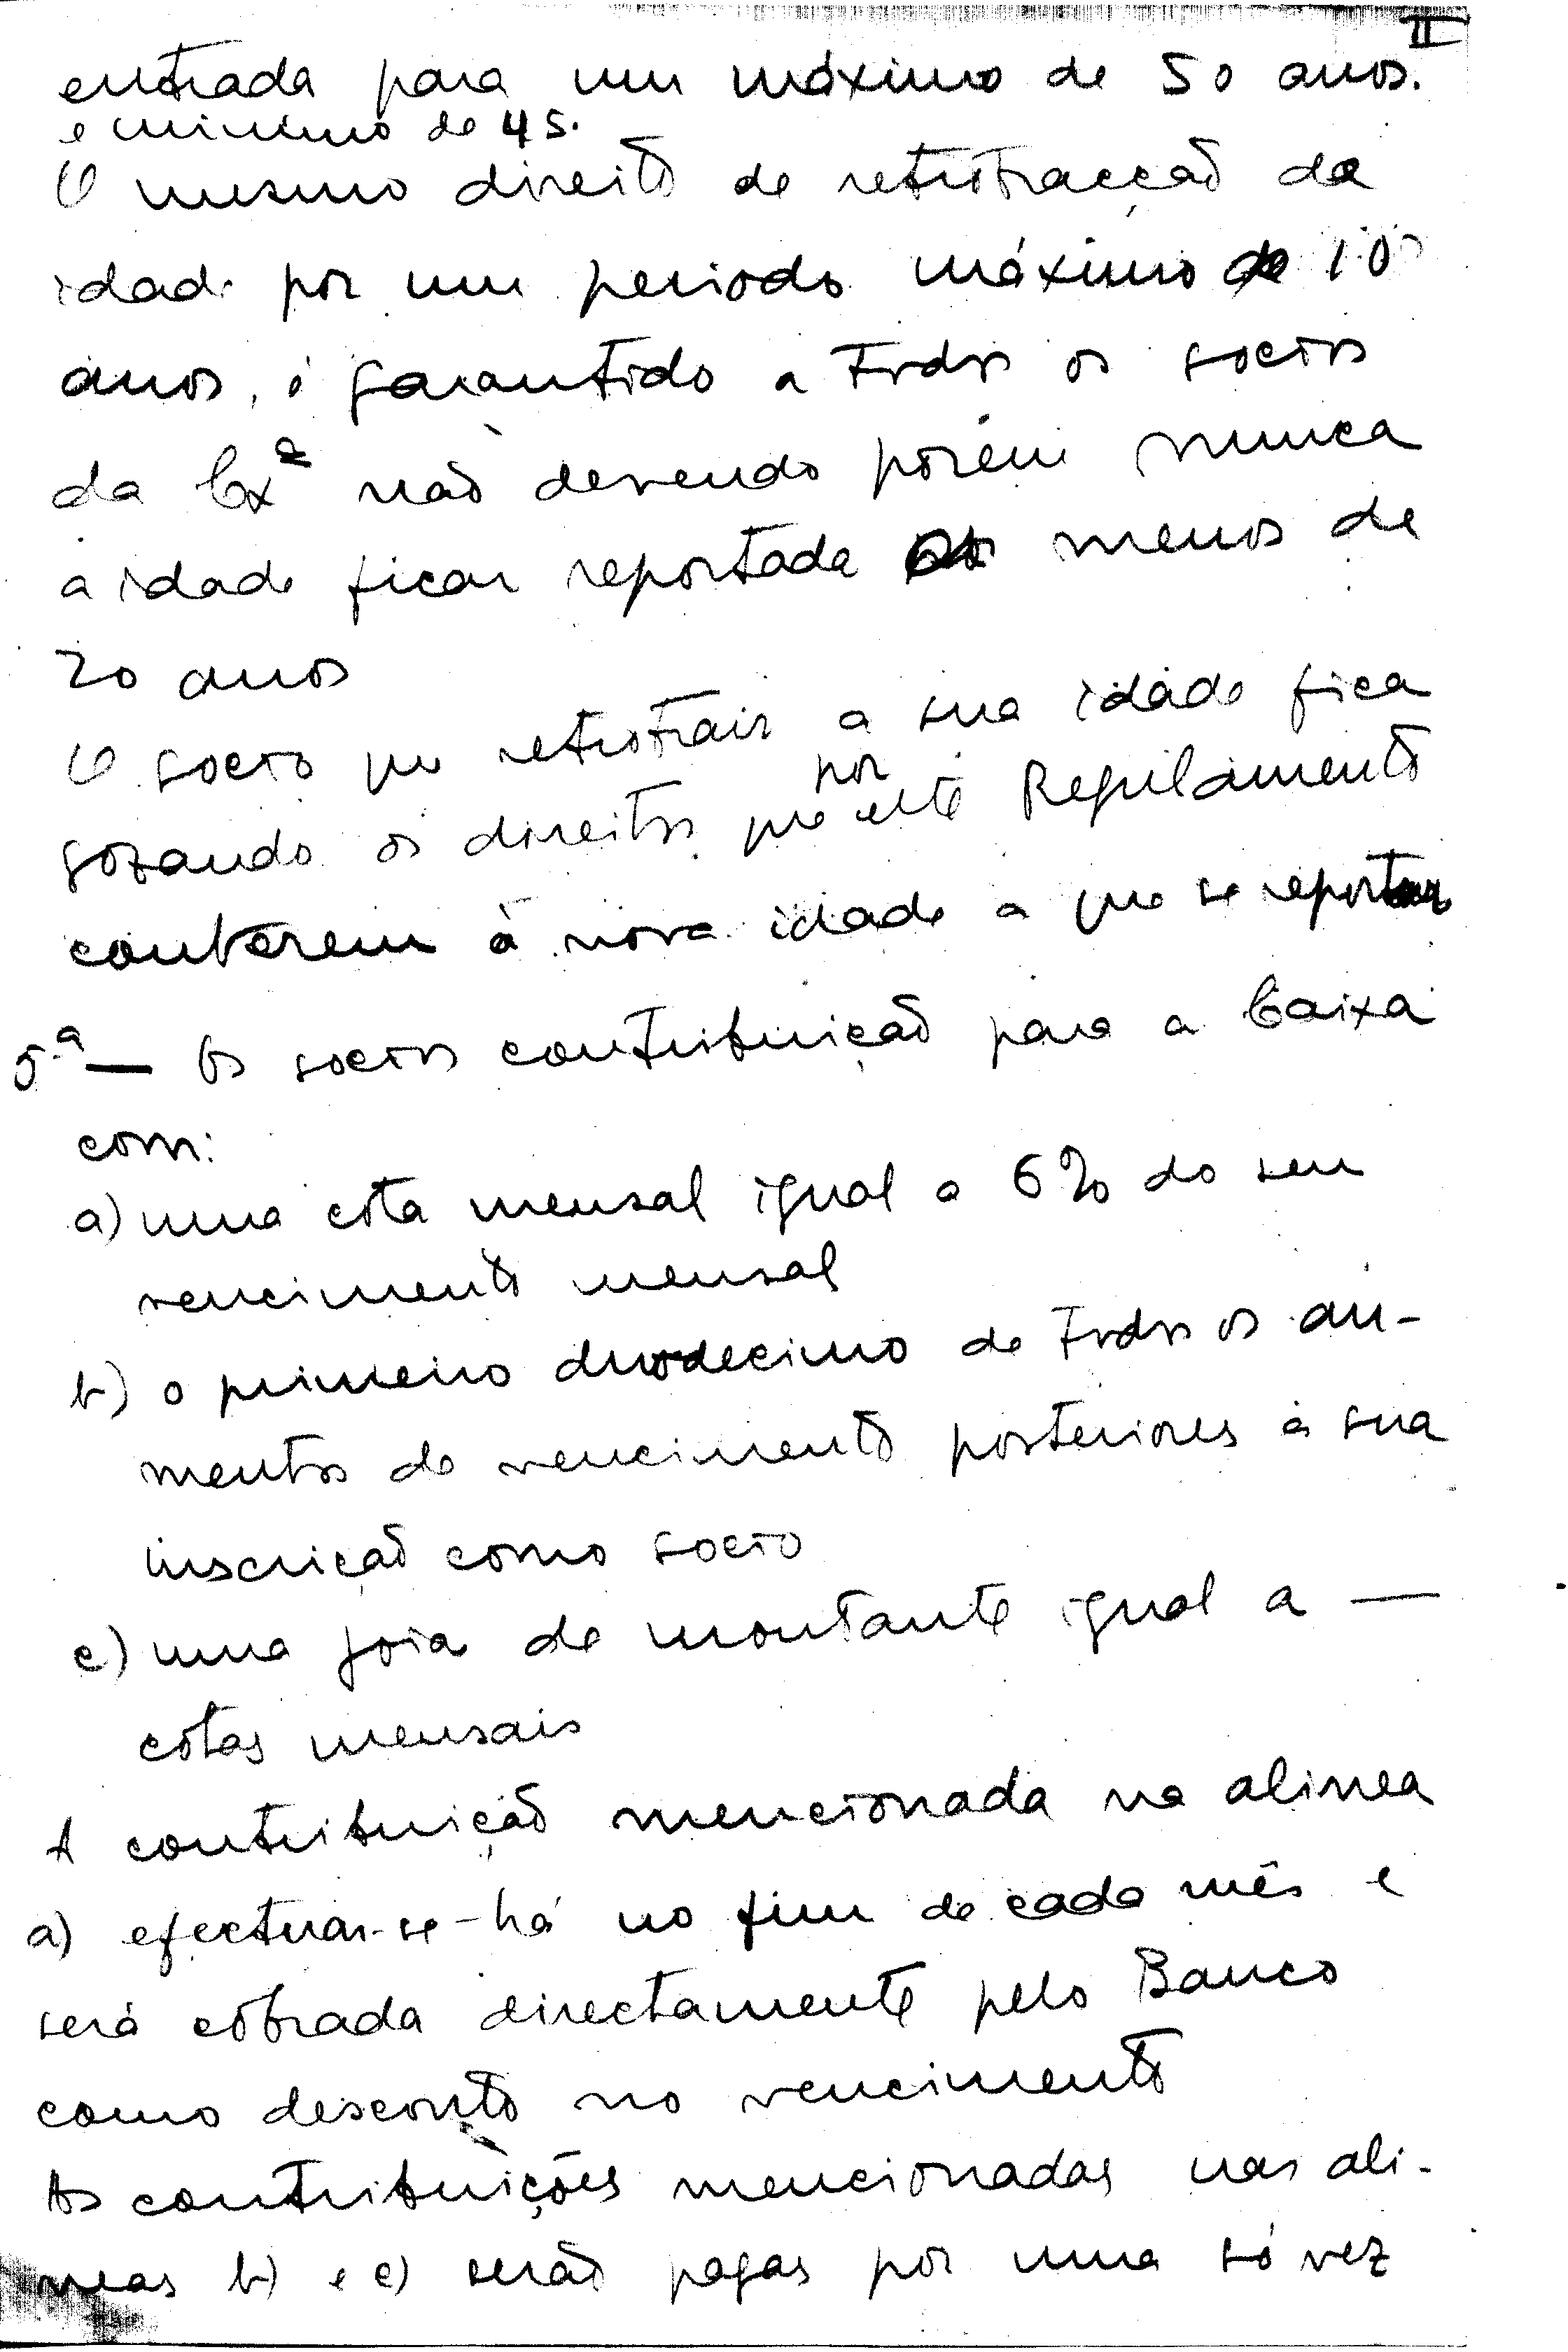 II
entrada para um máximo de 50 anos.
e minimo de 45.
O mesmo direito de retrotracção da
idade por um periodo máximo de 10
anos, é garantido a todos os socios
da Cxª não devendo porém nunca
a idade ficar reportada a menos de
20 anos
O socio que retrotrair a sua idade fica
gozando os direitos que por este Regulamento
conterem à nova idade a que se reportar
5.ª — Os socios contribuição para a Caixa
com:
a) uma cota mensal igual a 6% do seu
vencimento mensal
b) o primeiro duodecimo de todos os au-
mentos de vencimento posteriores á sua
inscrição como socio
c) uma joia de montante igual a —
cotas mensais
A contribuição mencionada na alinea
a) efectuar-se-há no fim de cada mês e
será cobrada directamente pelo Banco
como desconto no vencimento
As contribuições mencionadas nas ali-
neas b) e c) serão pagas por uma só vez